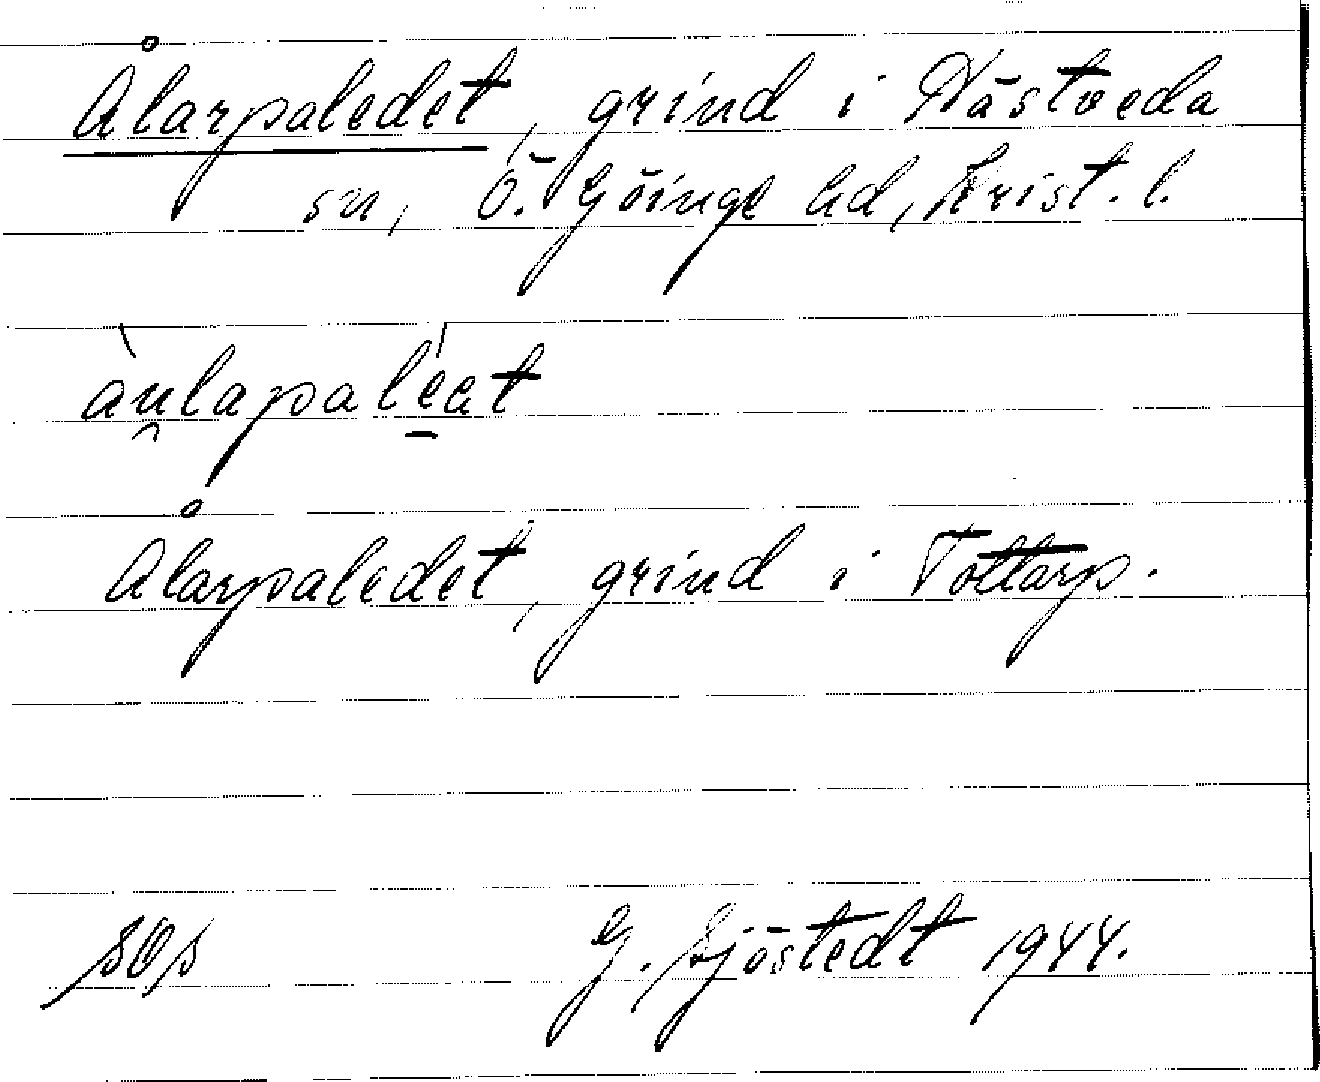 Ålarpaledet, grind i Nästveda
sn, Ö. Göinge hd, Krist. l.
àu̯lapalé̠at
Ålarpaledet, grind i Tottarp.
G. Sjöstedt 1944.